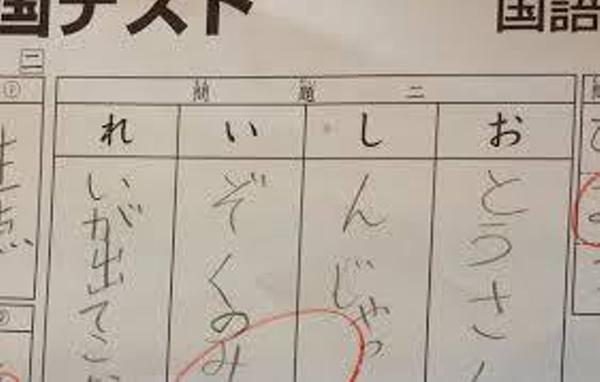 国テスト
国語
二
問題二
おとうさ
しんじゃっ
いぞくのみ
れいが出てこ
点